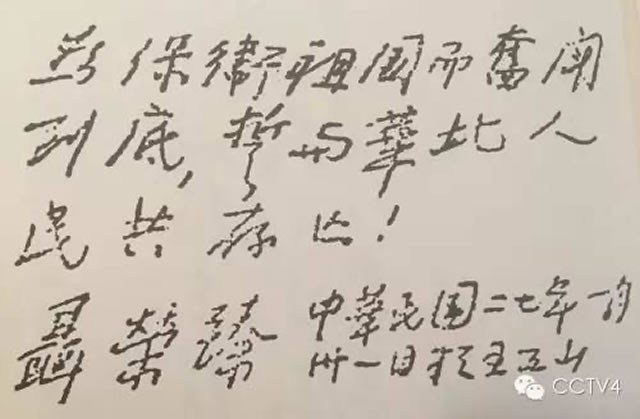 為保衛祖国而奮鬥
到底,誓与華北人
民共存亡!
聶榮臻
中華民国二七年一月
卅一日於五台山
CCTV4